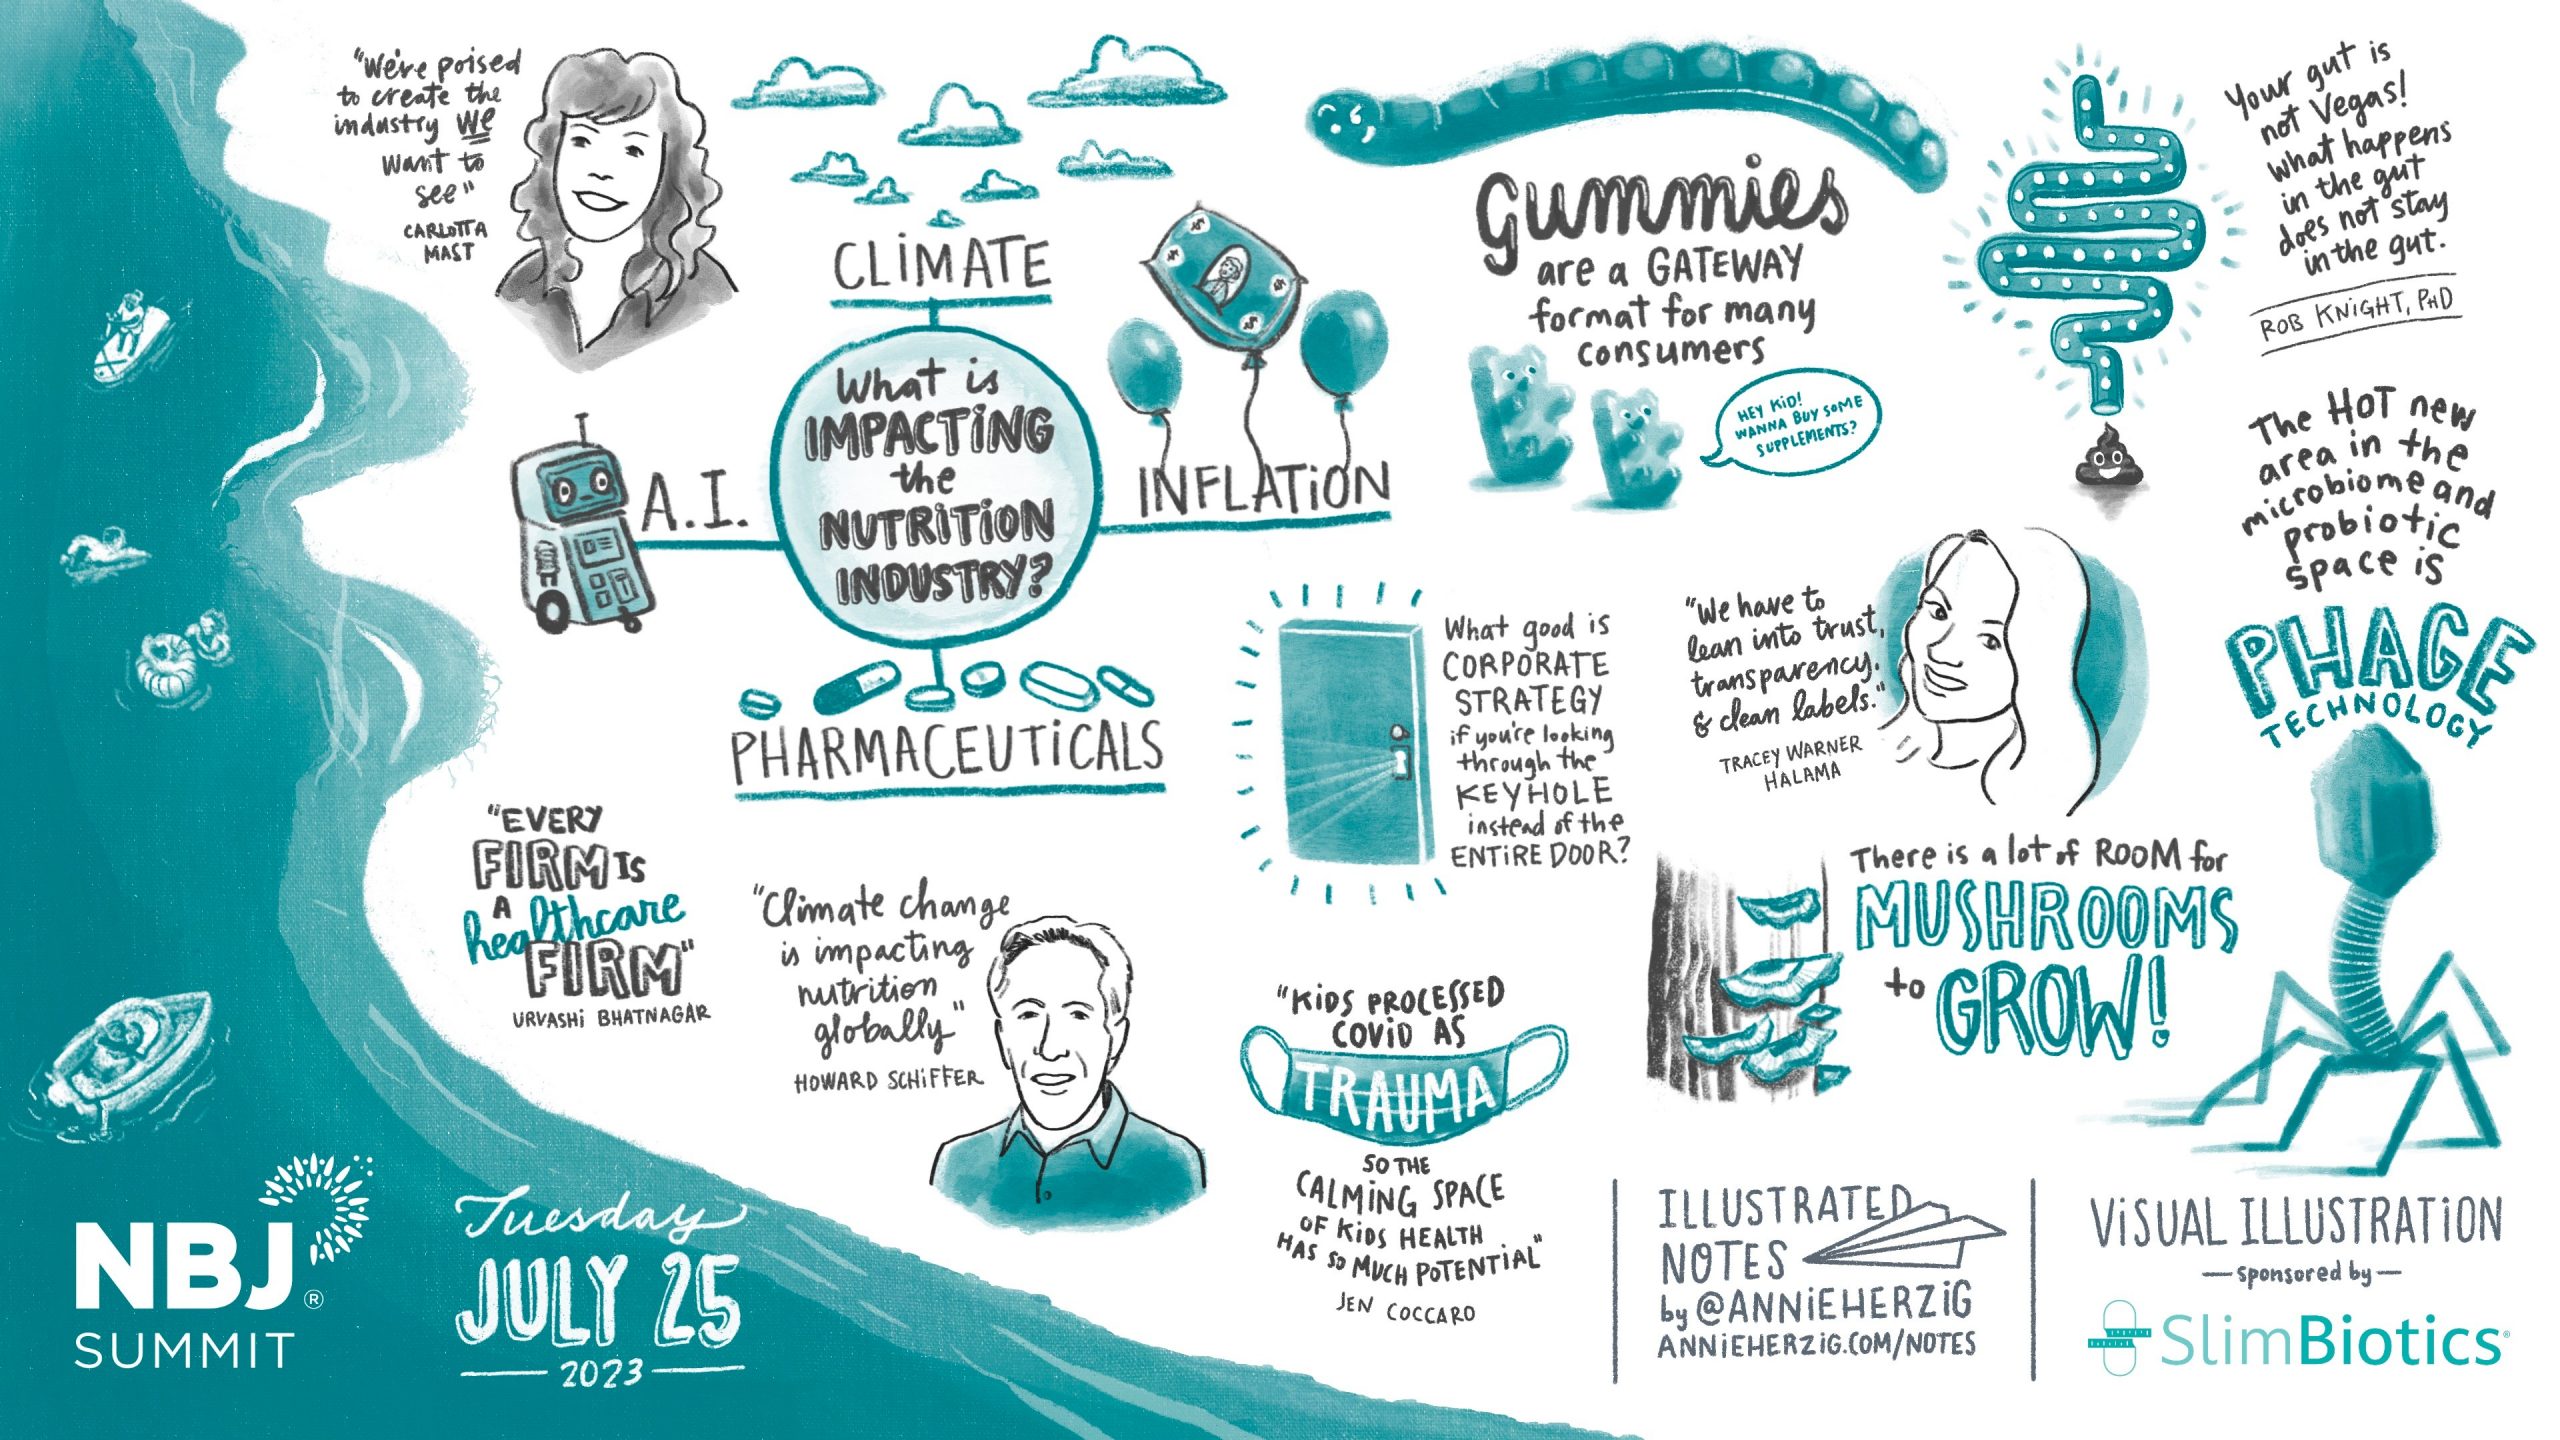 "We're poised
to create the
industry we
want to
see"
CARLOTTA
MAST
CLIMATE
What is
IMPACTING
the
NUTRITION
INDUSTRY?
A.I.
INFLATION
PHARMACEUTICALS
"EVERY
FIRM IS
A
healthcare
FIRM"
URVASHI BHATNAGAR
"Climate change
is impacting
nutrition
globally"
HOWARD SCHIFFER
gummies
are a GATEWAY
format for many
consumers
HEY KID!
WANNA BUY SOME
SUPPLEMENTS?
What good is
CORPORATE
STRATEGY
if you're looking
through the
KEYHOLE
instead of the
ENTIRE DOOR?
"KIDS PROCESSED
COVID AS
TRAUMA
SO THE
CALMING SPACE
OF KIDS HEALTH
HAS SO MUCH POTENTIAL"
JEN COCCARO
Your gut is
not Vegas!
What happens
in the gut
does not stay
in the gut.
ROB KNIGHT, PHD
"We have to
lean into trust,
transparency,
& clean labels."
TRACEY WARNER
HALAMA
The HOT new
area in the
microbiome and
probiotic
space is
PHAGE
TECHNOLOGY
There is a lot of ROOM for
MUSHROOMS
to GROW!
NBJ®
SUMMIT
Tuesday
JULY 25
2023
ILLUSTRATED
NOTES
by @ANNIEHERZIG
ANNIEHERZIG.COM/NOTES
VISUAL ILLUSTRATION
— sponsored by —
SlimBiotics®